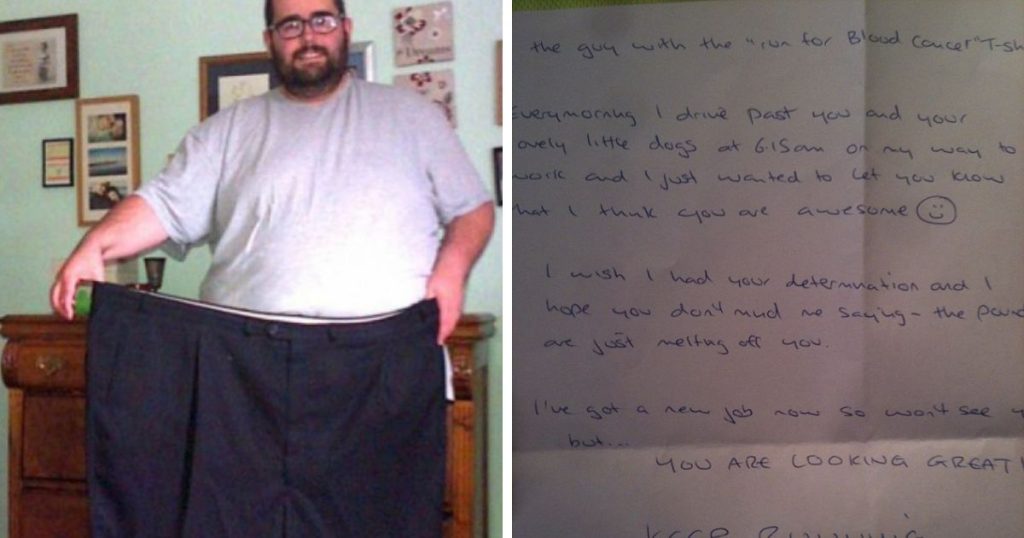 Dreams
the guy with the "run for Blood Cancer" T-sh
Everymorning I drive past you and your
ovely little dogs at 6.15am on my way to
work and I just wanted to let you know
hat I think you are awesome
I wish I had your determination and I
hope you don't mind me saying - the pound
are just melting off you.
I've got a new job now so won't see y
but...
YOU ARE LOOKING GREAT!
KEEP RUNNING